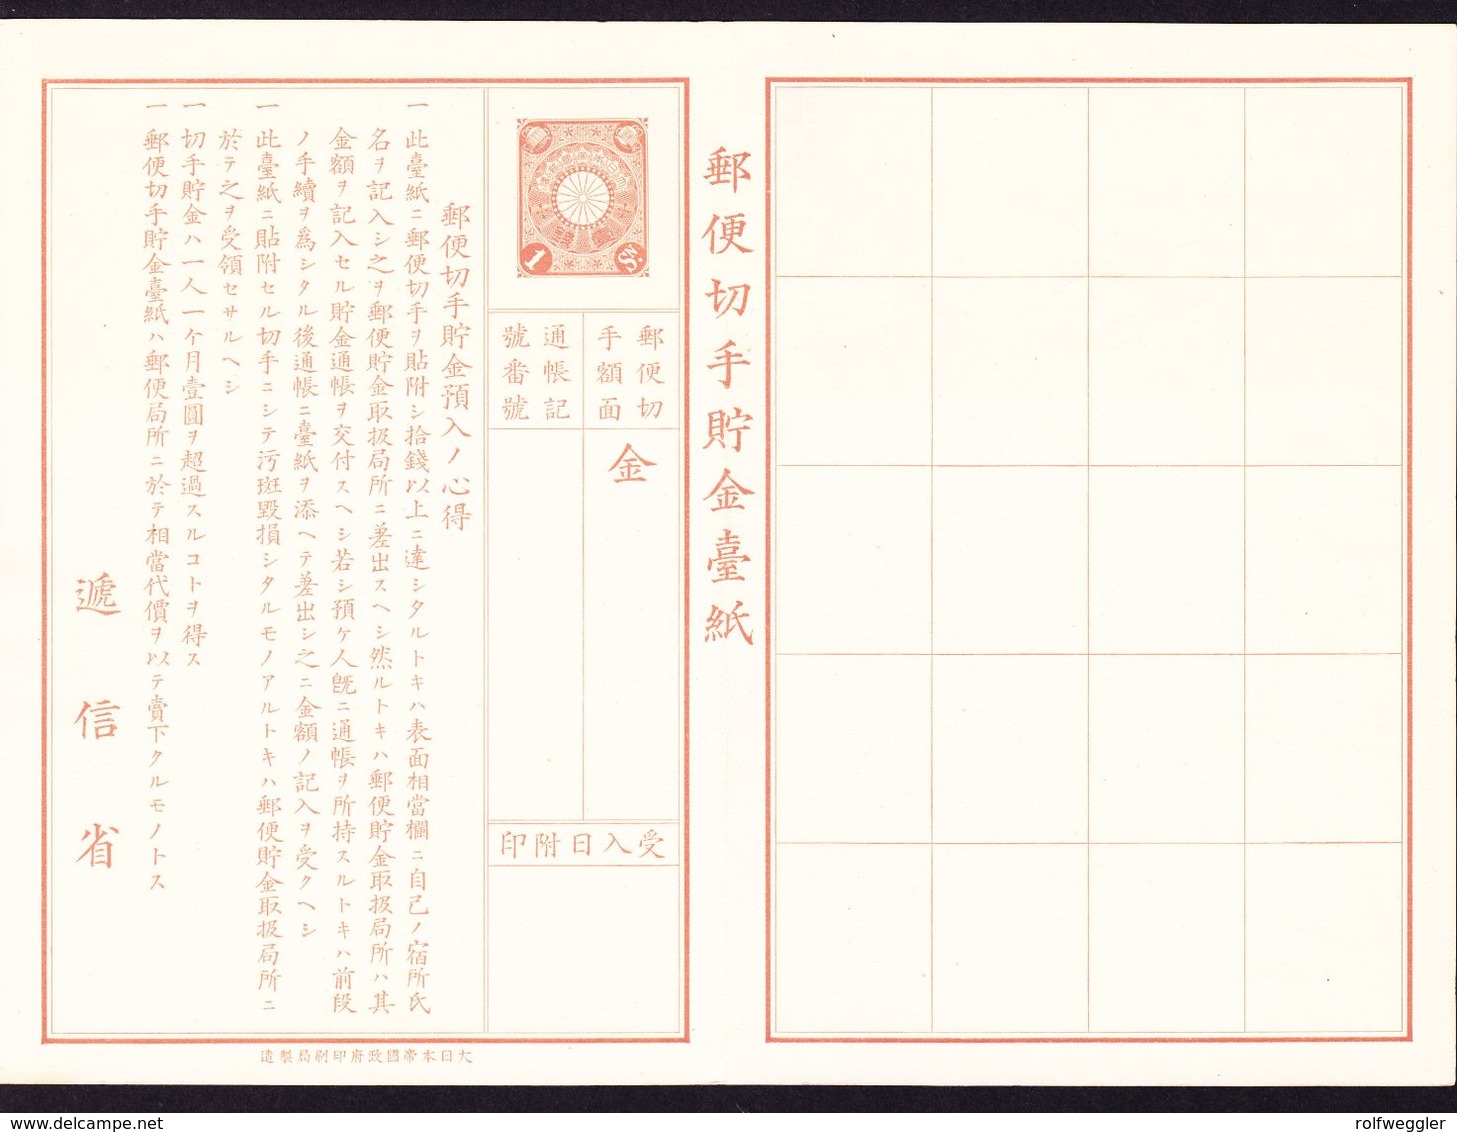 郵便切手貯金臺紙
1
1
Sn.
郵便切
手額面
通帳記
號番號
金
受入日附印
郵便切手貯金預入ノ心得
一此臺紙ニ郵便切手ヲ貼附シ拾錢以上ニ達シタルトキハ表面相當欄ニ自己ノ宿所氏
名ヲ記入シ之ヲ郵便貯金取扱局所ニ差出スヘシ然ルトキハ郵便貯金取扱局所ハ其
金額ヲ記入セル貯金通帳ヲ交付スヘシ若シ預ケ人既ニ通帳ヲ所持スルトキハ前段
ノ手續ヲ爲シタル後通帳ニ臺紙ヲ添ヘテ差出シ之ニ金額ノ記入ヲ受クヘシ
一此臺紙ニ貼附セル切手ニシテ汚斑毀損シタルモノアルトキハ郵便貯金取扱局所ニ
於テ之ヲ受領セサルヘシ
一切手貯金ハ一人一ケ月壹圓ヲ超過スルコトヲ得ス
一郵便切手貯金臺紙ハ郵便局所ニ於テ相當代價ヲ以テ賣下クルモノトス
遞信省
大日本帝國政府印刷局製造
www.delcampe.net
rolfweggler